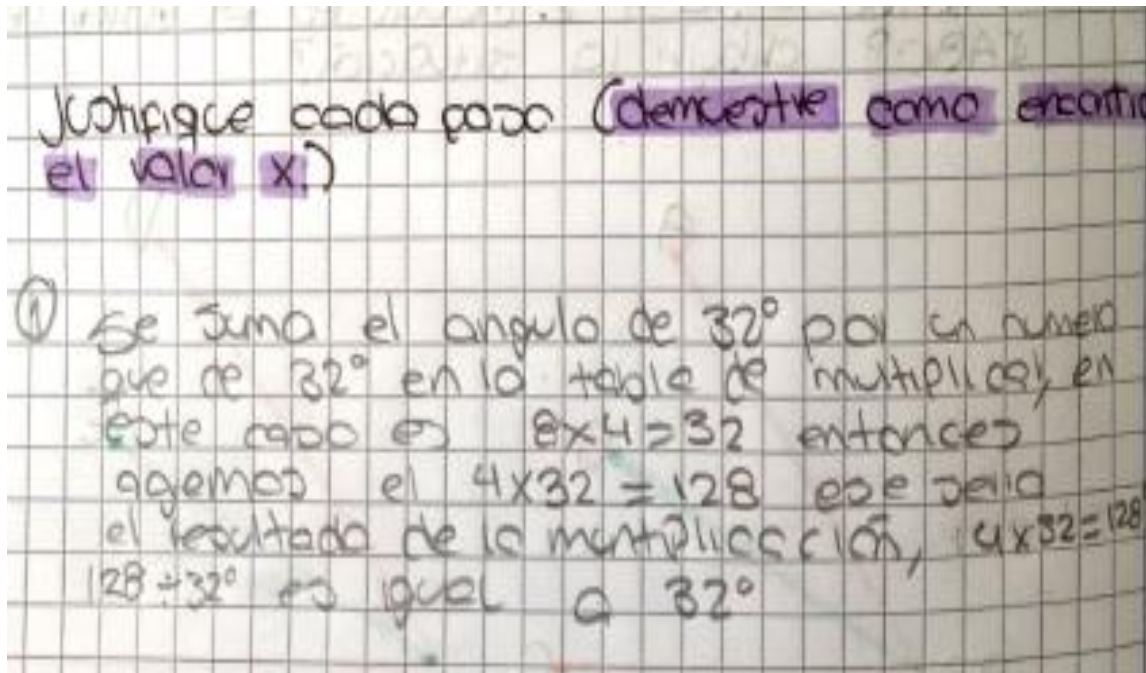 Justifique cada paso (demuestre como encontr
el valor x.)
① se suma el angulo de 32° por un numero
que de 32° en la tabla de multiplicar, en
este caso es 8x4=32 entonces
agemos el 4x32=128 ese seria
el resultado de la multiplicación, 4x32=128
128÷32° es igual a 32°